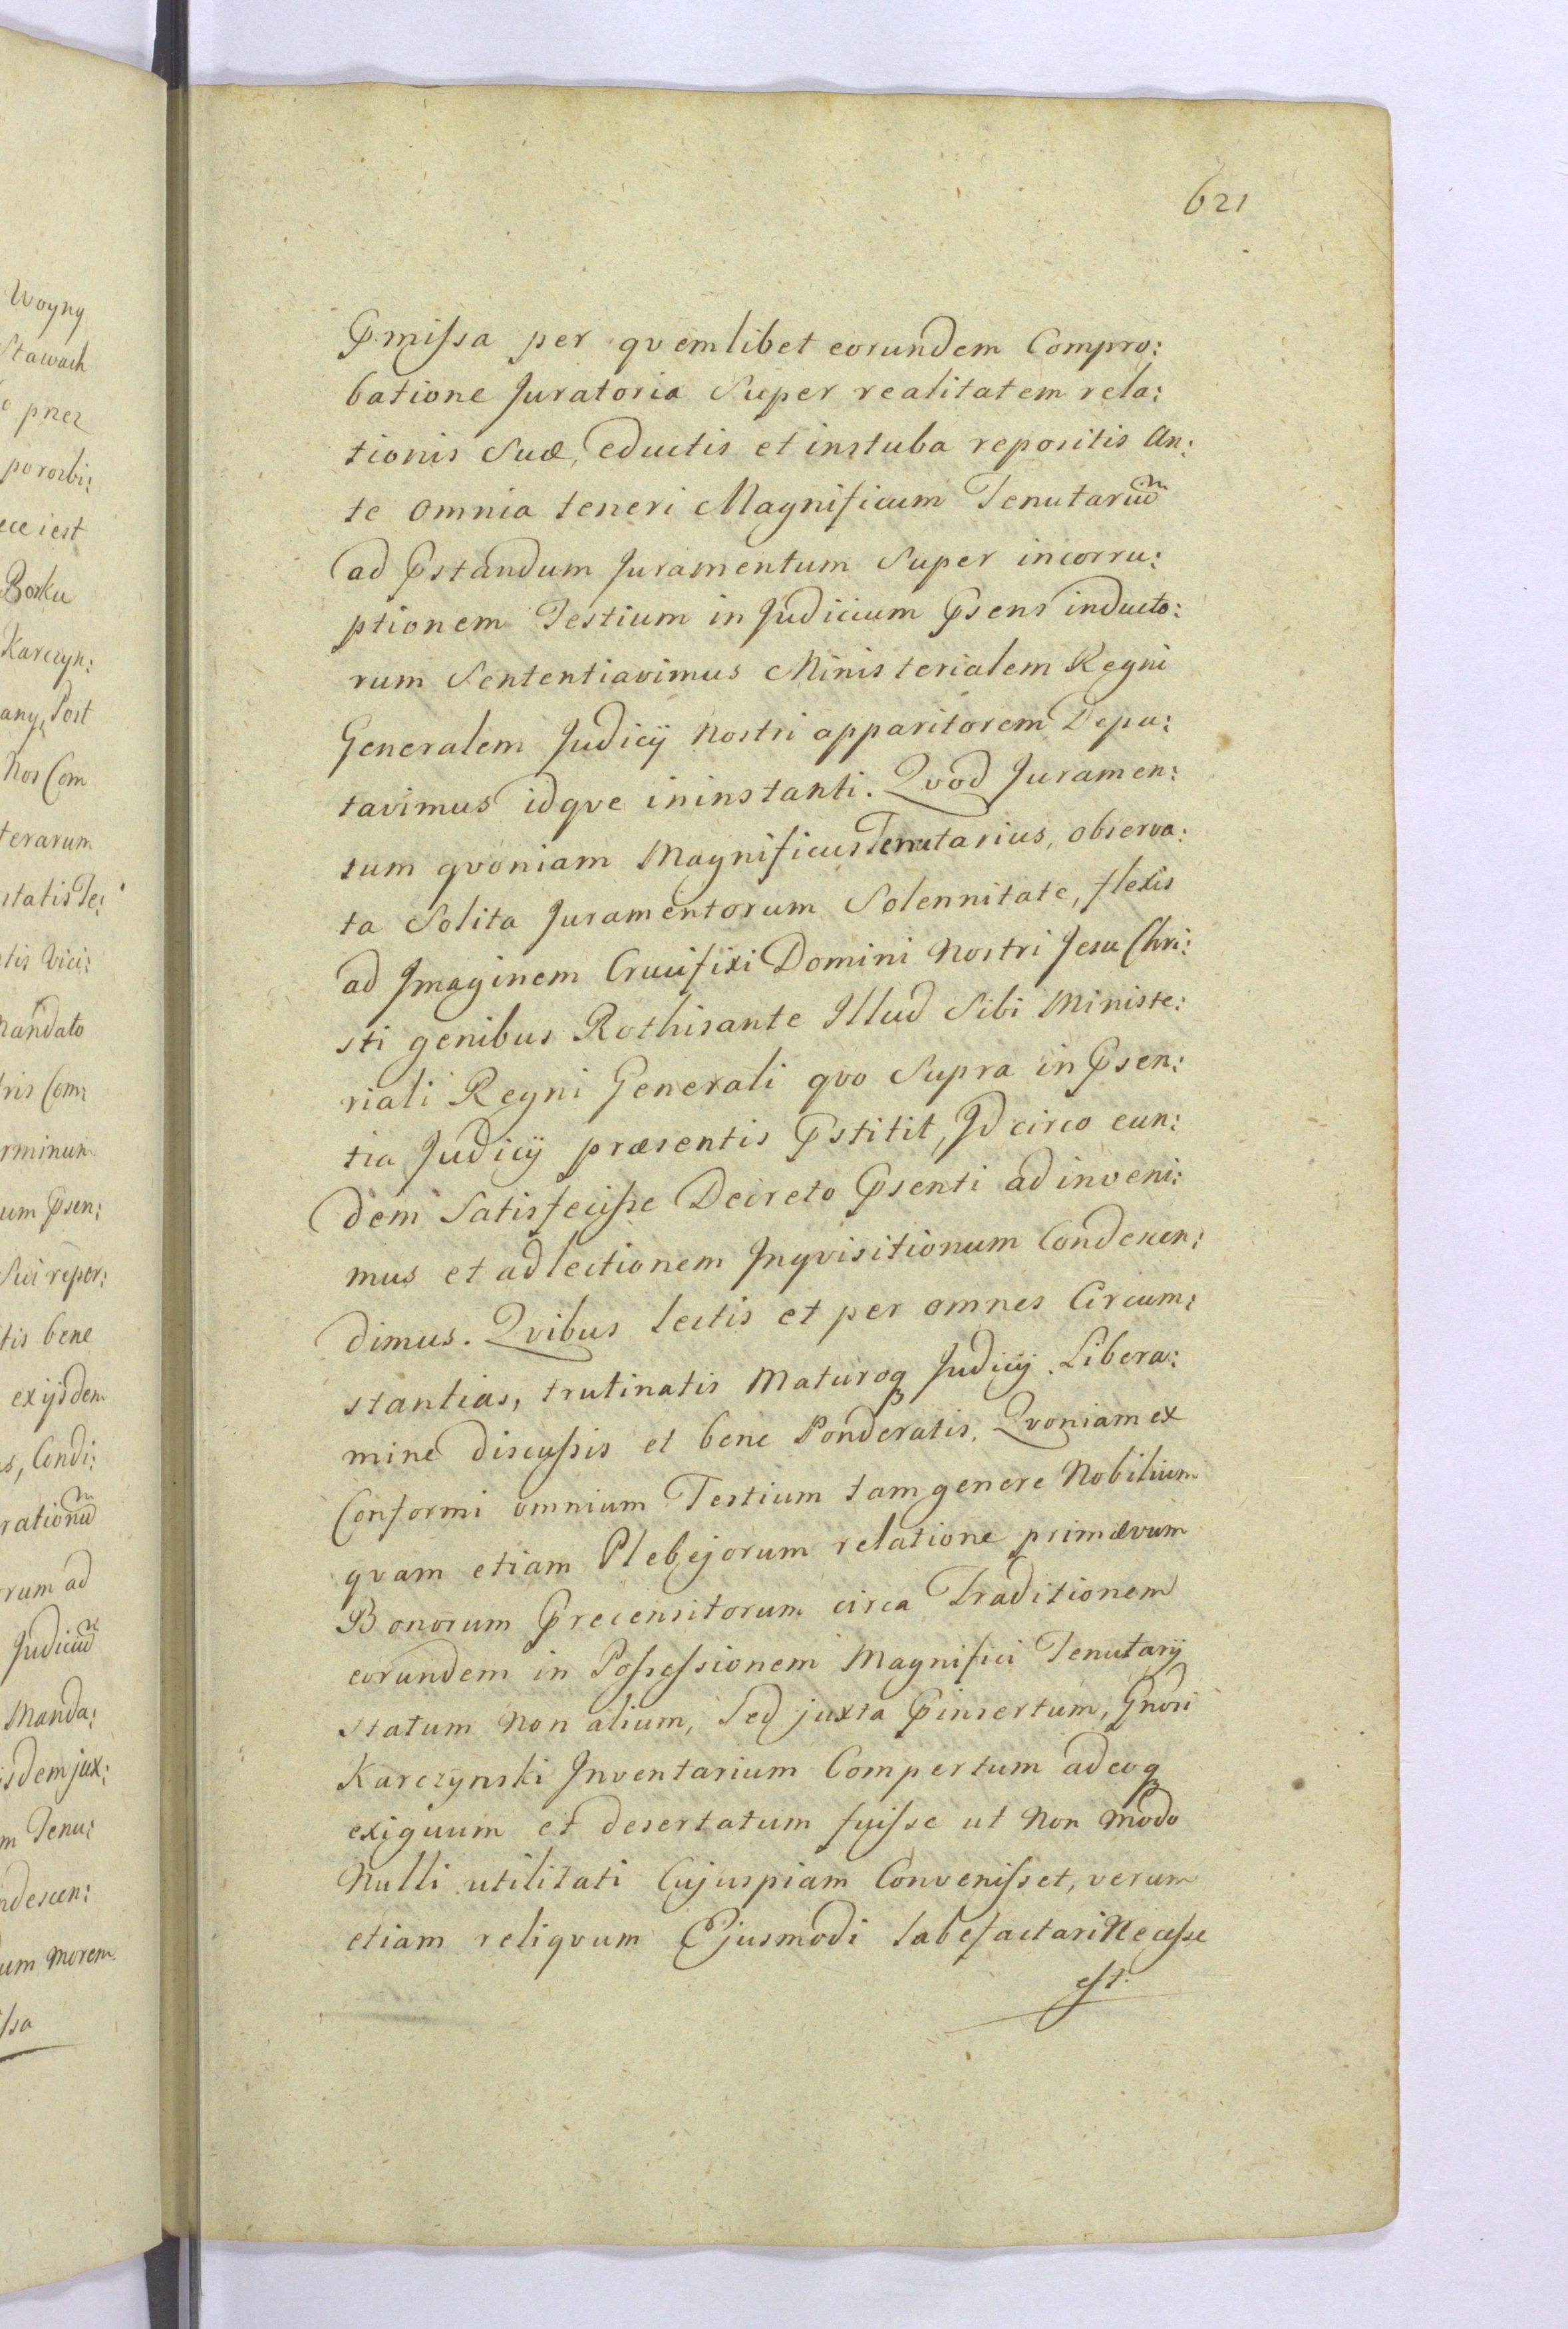 621
Woyny
Stawach
pnez
porosbi:
iest
Borku
Karczyn:
any, Post
Nos Com
terarum
statis Te:
tis Vici:
Mandato
ris Com:
rminum
um Psen:
Sui reper:
tis bene
ex ijsdem
s, Condi:
rationũ
rum ad
Judiciũ
Manda:
isdem jux:
m Tenu:
ndescen:
um morem
ssa
Pmissa per qvemlibet eorundem Compro:
batione Juratoria Super realitatem rela:
tionis Suæ, eductis et instuba repositis An:
te omnia teneri Magnificum Tenutariũ
ad Pstandum Juramentum Super incorru:
ptionem Testium in Judicium Psens inducto:
rum Sententiavimus Ministerialem Regni
Generalem Judicij nostri apparitorem Depu:
tavimus idqve ininstanti. Qvod Juramen:
tum qvoniam Magnificus Tenutarius, observa:
ta Solita Juramentorum Solennitate, flexis
ad Imaginem Crucifixi Domini Nostri Jesu Chri:
sti genibus Rothisante Illud Sibi Ministe:
riali Regni Generali qvo Supra in Psen:
tia Judicij præsentis Pstitit, Id circo eun:
dem Satisfecisse Decreto Psenti adinveni:
mus et ad lectionem Inqvisitionum Condescen:
dimus. Qvibus lectis et per omnes Circum:
stantias, trutinatis Maturoq Judicij Libera:
mine discussis et bene Ponderatis. Qvoniam ex
Conformi omnium Testium tam genere Nobilium
qvam etiam Plebejorum relatione primævum
Bonorum Precensitorum circa Traditionem
eorundem in Possessionem Magnifici Tenutarij
statum Non alium, Sed juxta Pinsertum, Gnosi
Karczynski Inventarium Compertum adeoq
exiguum et desertatum fuisse ut Non modo
Nulli utilitati Cujuspiam Convenisset, verum
etiam reliqvum Ejusmodi labefactari Necesse
est.